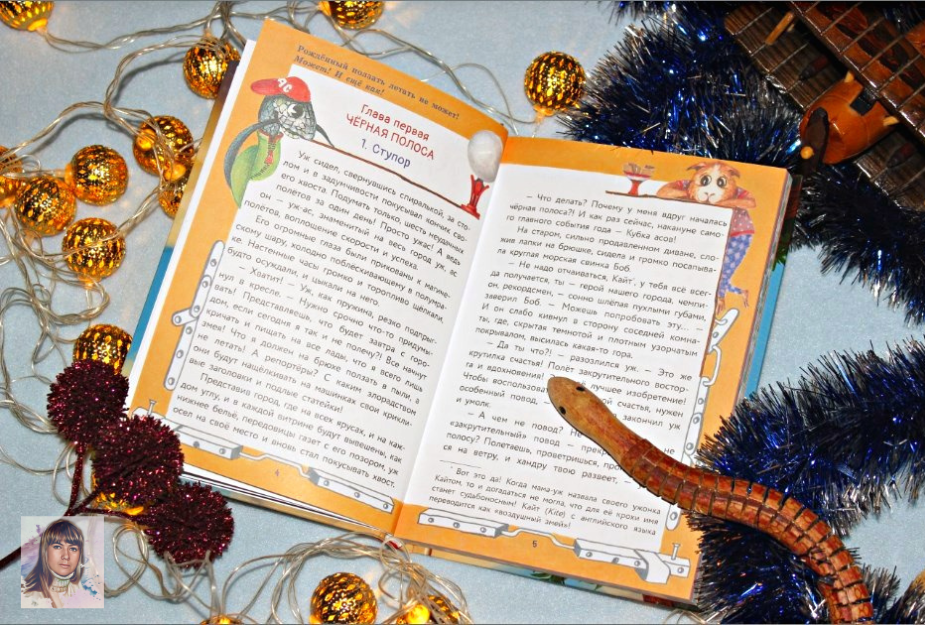 Рождённый ползать летать не может!
Может! И ещё как!
Глава первая
ЧЁРНАЯ ПОЛОСА
1. Ступор
Уж сидел, свернувшись спиралью, за сто-
лом и в задумчивости покусывал кончик сво-
его хвоста. Подумать только, шесть неудачных
полётов за один день! Просто ужас! А ведь
он — уж-ас, знаменитый на весь город уж, ас
полётов, воплощение скорости и успеха.
Его огромные глаза были прикованы к магиче-
скому шару, холодно поблёскивающему в полумра-
ке. Настенные часы громко и торопливо щёлкали,
будто осуждали, и цыкали на него.
— Хватит! — Уж, как пружина, резко подпрыг-
нул в кресле. — Нужно срочно что-то придумы-
вать! Представляешь, что будет завтра с горо-
дом, если сегодня я так и не полечу?! Все начнут
кричать и пищать на все лады, что я всего лишь
змея! Что я должен на брюхе ползать в пыли, а
не летать! А репортёры? С каким злорадством
они будут нащёлкивать на машинках свои крикли-
вые заголовки и подлые статейки!
Представив город, где на всех ярусах, и на каж-
дом углу, и в каждой витрине будут вывешены, как
нижнее бельё, передовицы газет с его позором, уж
осел на своё место и вновь стал покусывать хвост.
4
— Что делать? Почему у меня вдруг началась
чёрная полоса?! И как раз сейчас, накануне само-
го главного события года — Кубка асов!
На старом, сильно продавленном диване, сло-
жив лапки на брюшке, сидела и громко посапыва-
ла круглая морская свинка Боб.
— Не надо отчаиваться, Кайт*, у тебя всё всег-
да получается, ты — герой нашего города, чемпи-
он, рекордсмен, — сонно шлёпая пухлыми губами,
заверил Боб. — Можешь попробовать эту... —
он слабо кивнул в сторону соседней комна-
ты, где, скрытая темнотой и плотным узорчатым
покрывалом, высилась какая-то гора.
— Да ты что?! — разозлился уж. — Это же
крутилка счастья! Полёт закрутительного востор-
га и вдохновения! Это лучшее изобретение!
Чтобы воспользова ой счастья, нужен
особенный повод, — закончил уж
и умолк.
— А чем не повод? Не
«закрутительный» повод — прекр не
полосу? Полетаешь, проветришься, про
ся на ветру, и хандру твою развеет, —
* Вот это да! Когда мама-уж назвала своего ужонка
Кайтом, то и догадаться не могла, что для её крохи имя
станет судьбоносным! Кайт (Kite) с английского языка
переводится как «воздушный змей»!
5